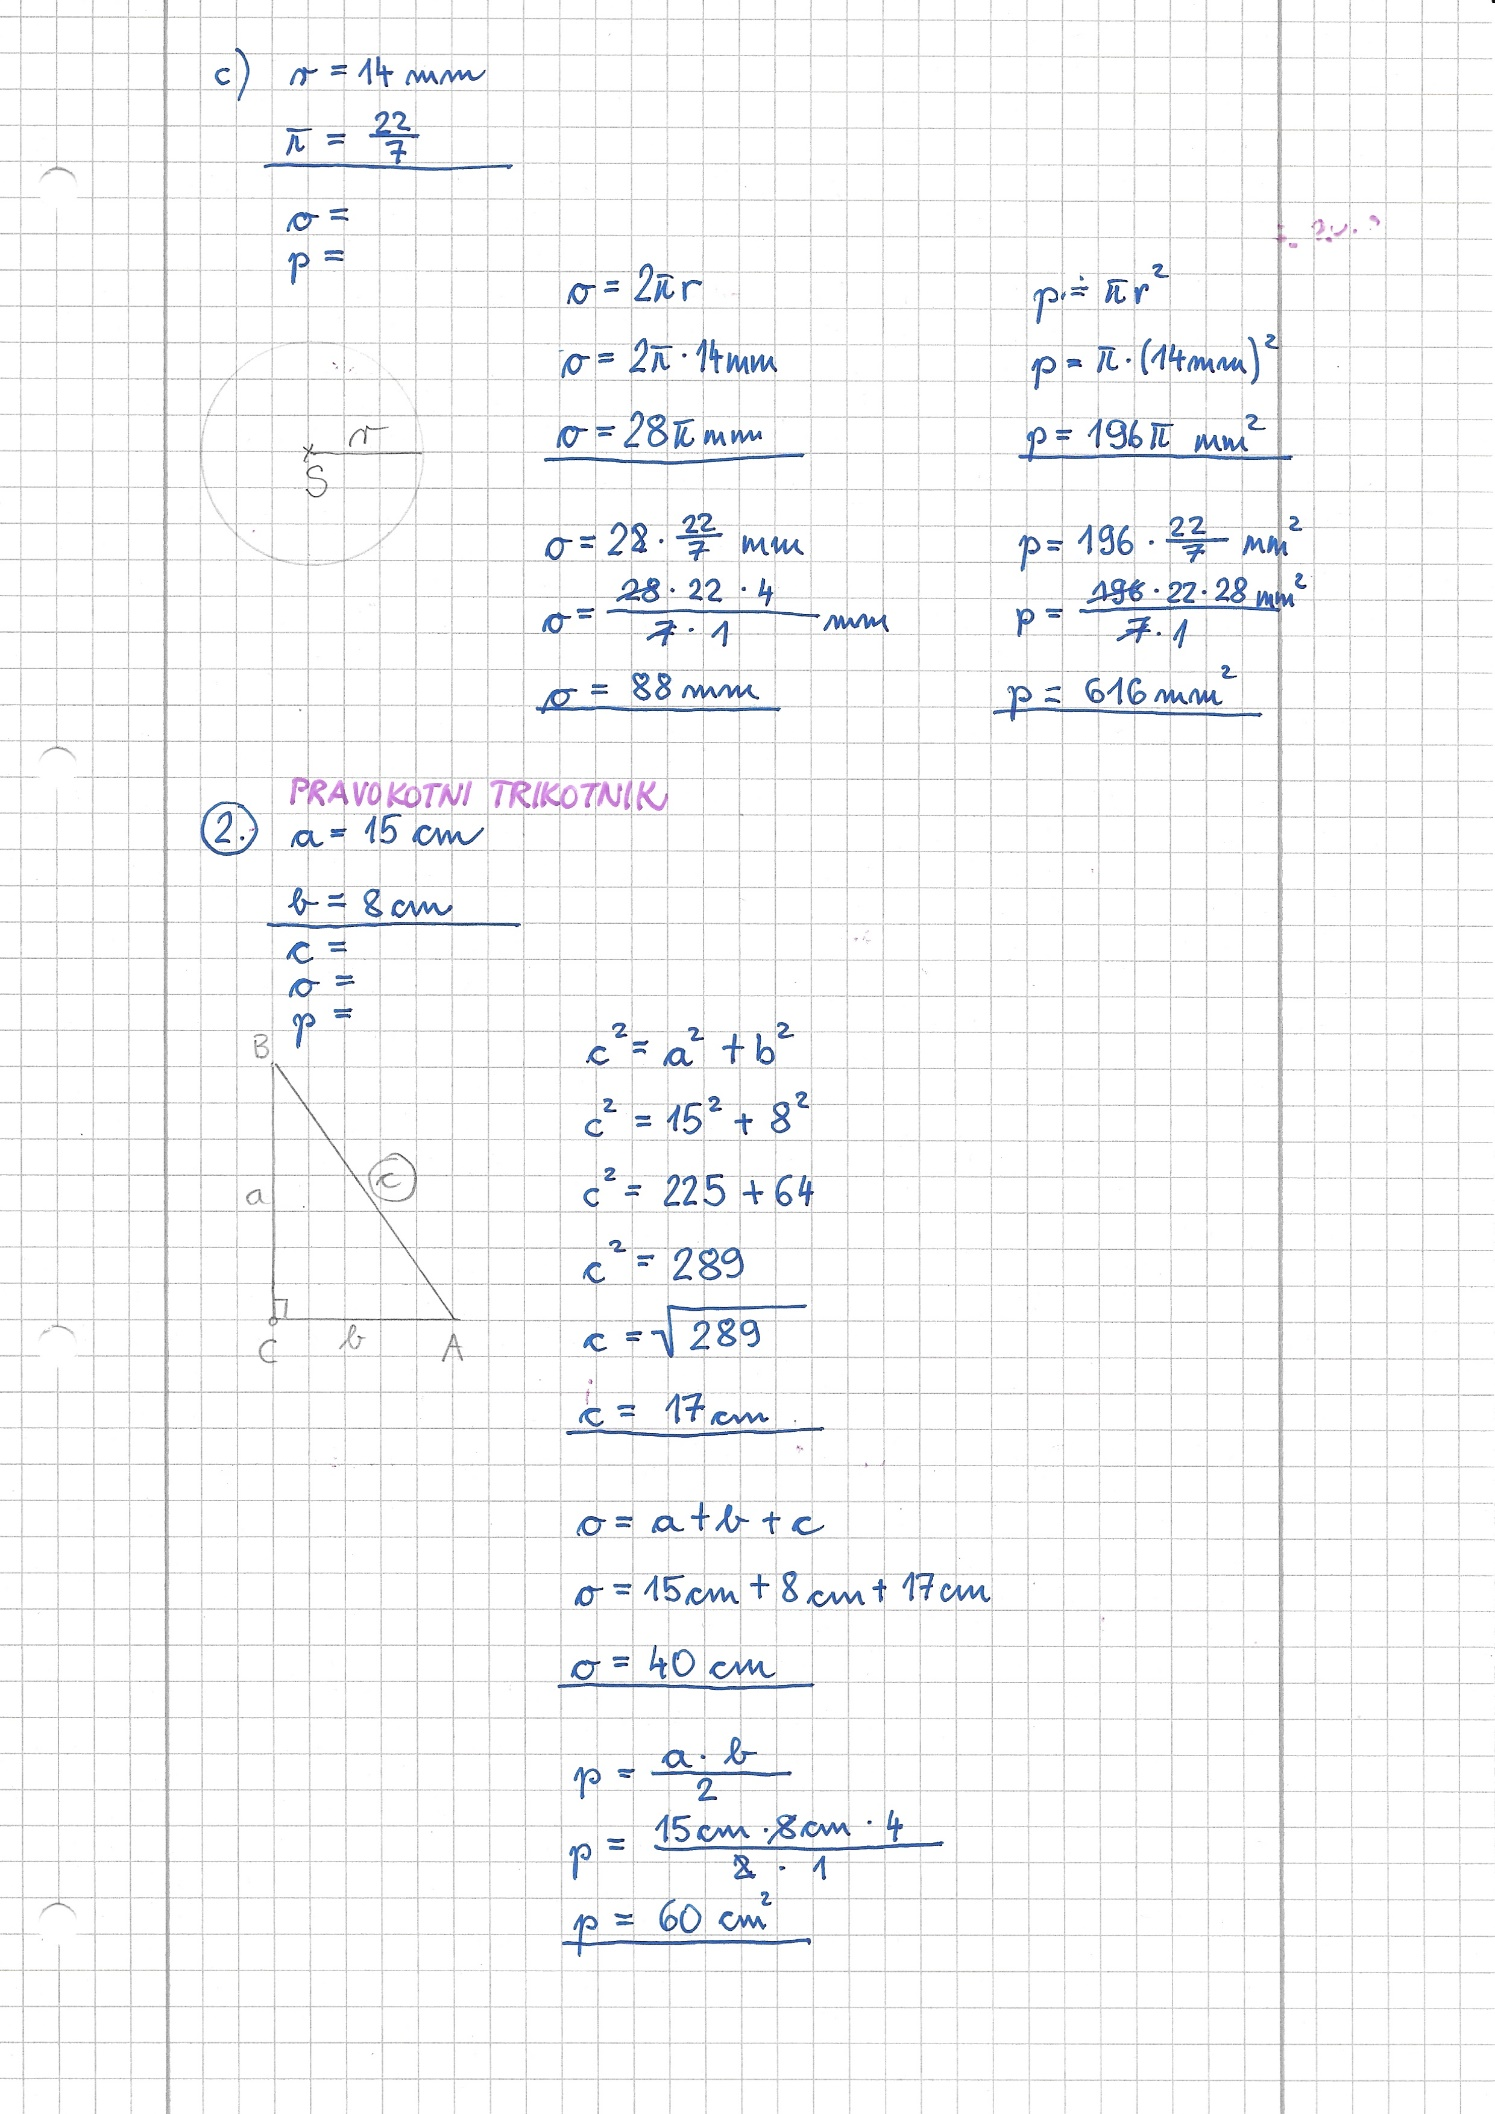 c) r = 14 mm
π = 22/7
o =
p =
o = 2πr
o = 2π · 14mm
o = 28π mm
o = 28 · 22/7 mm
o = 28 · 22 · 4 / 7 · 1 mm
o = 88 mm
p = πr²
p = π · (14mm)²
p = 196π mm²
p = 196 · 22/7 mm²
p = 196 · 22 · 28 mm² / 7 · 1
p = 616 mm²
r
S
PRAVOKOTNI TRIKOTNIK
2. a = 15 cm
b = 8 cm
c =
o =
p =
B
a
c
C b A
c² = a² + b²
c² = 15² + 8²
c² = 225 + 64
c² = 289
c = √289
c = 17 cm
o = a + b + c
o = 15cm + 8cm + 17cm
o = 40 cm
p = a · b / 2
p = 15cm · 8cm · 4 / 2 · 1
p = 60 cm²